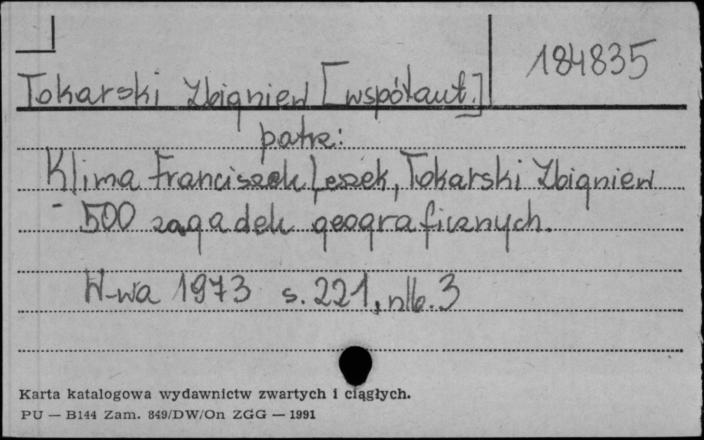 184835
Tokarski Zbigniew [współaut.]
patrz:
Klima Franciszek Leszek, Tokarski Zbigniew
- 500 zagadek geograficznych.
W-wa 1973 s. 221, nlb. 3
Karta katalogowa wydawnictw zwartych i ciągłych.
PU — B144 Zam. 849/DW/On ZGG — 1991